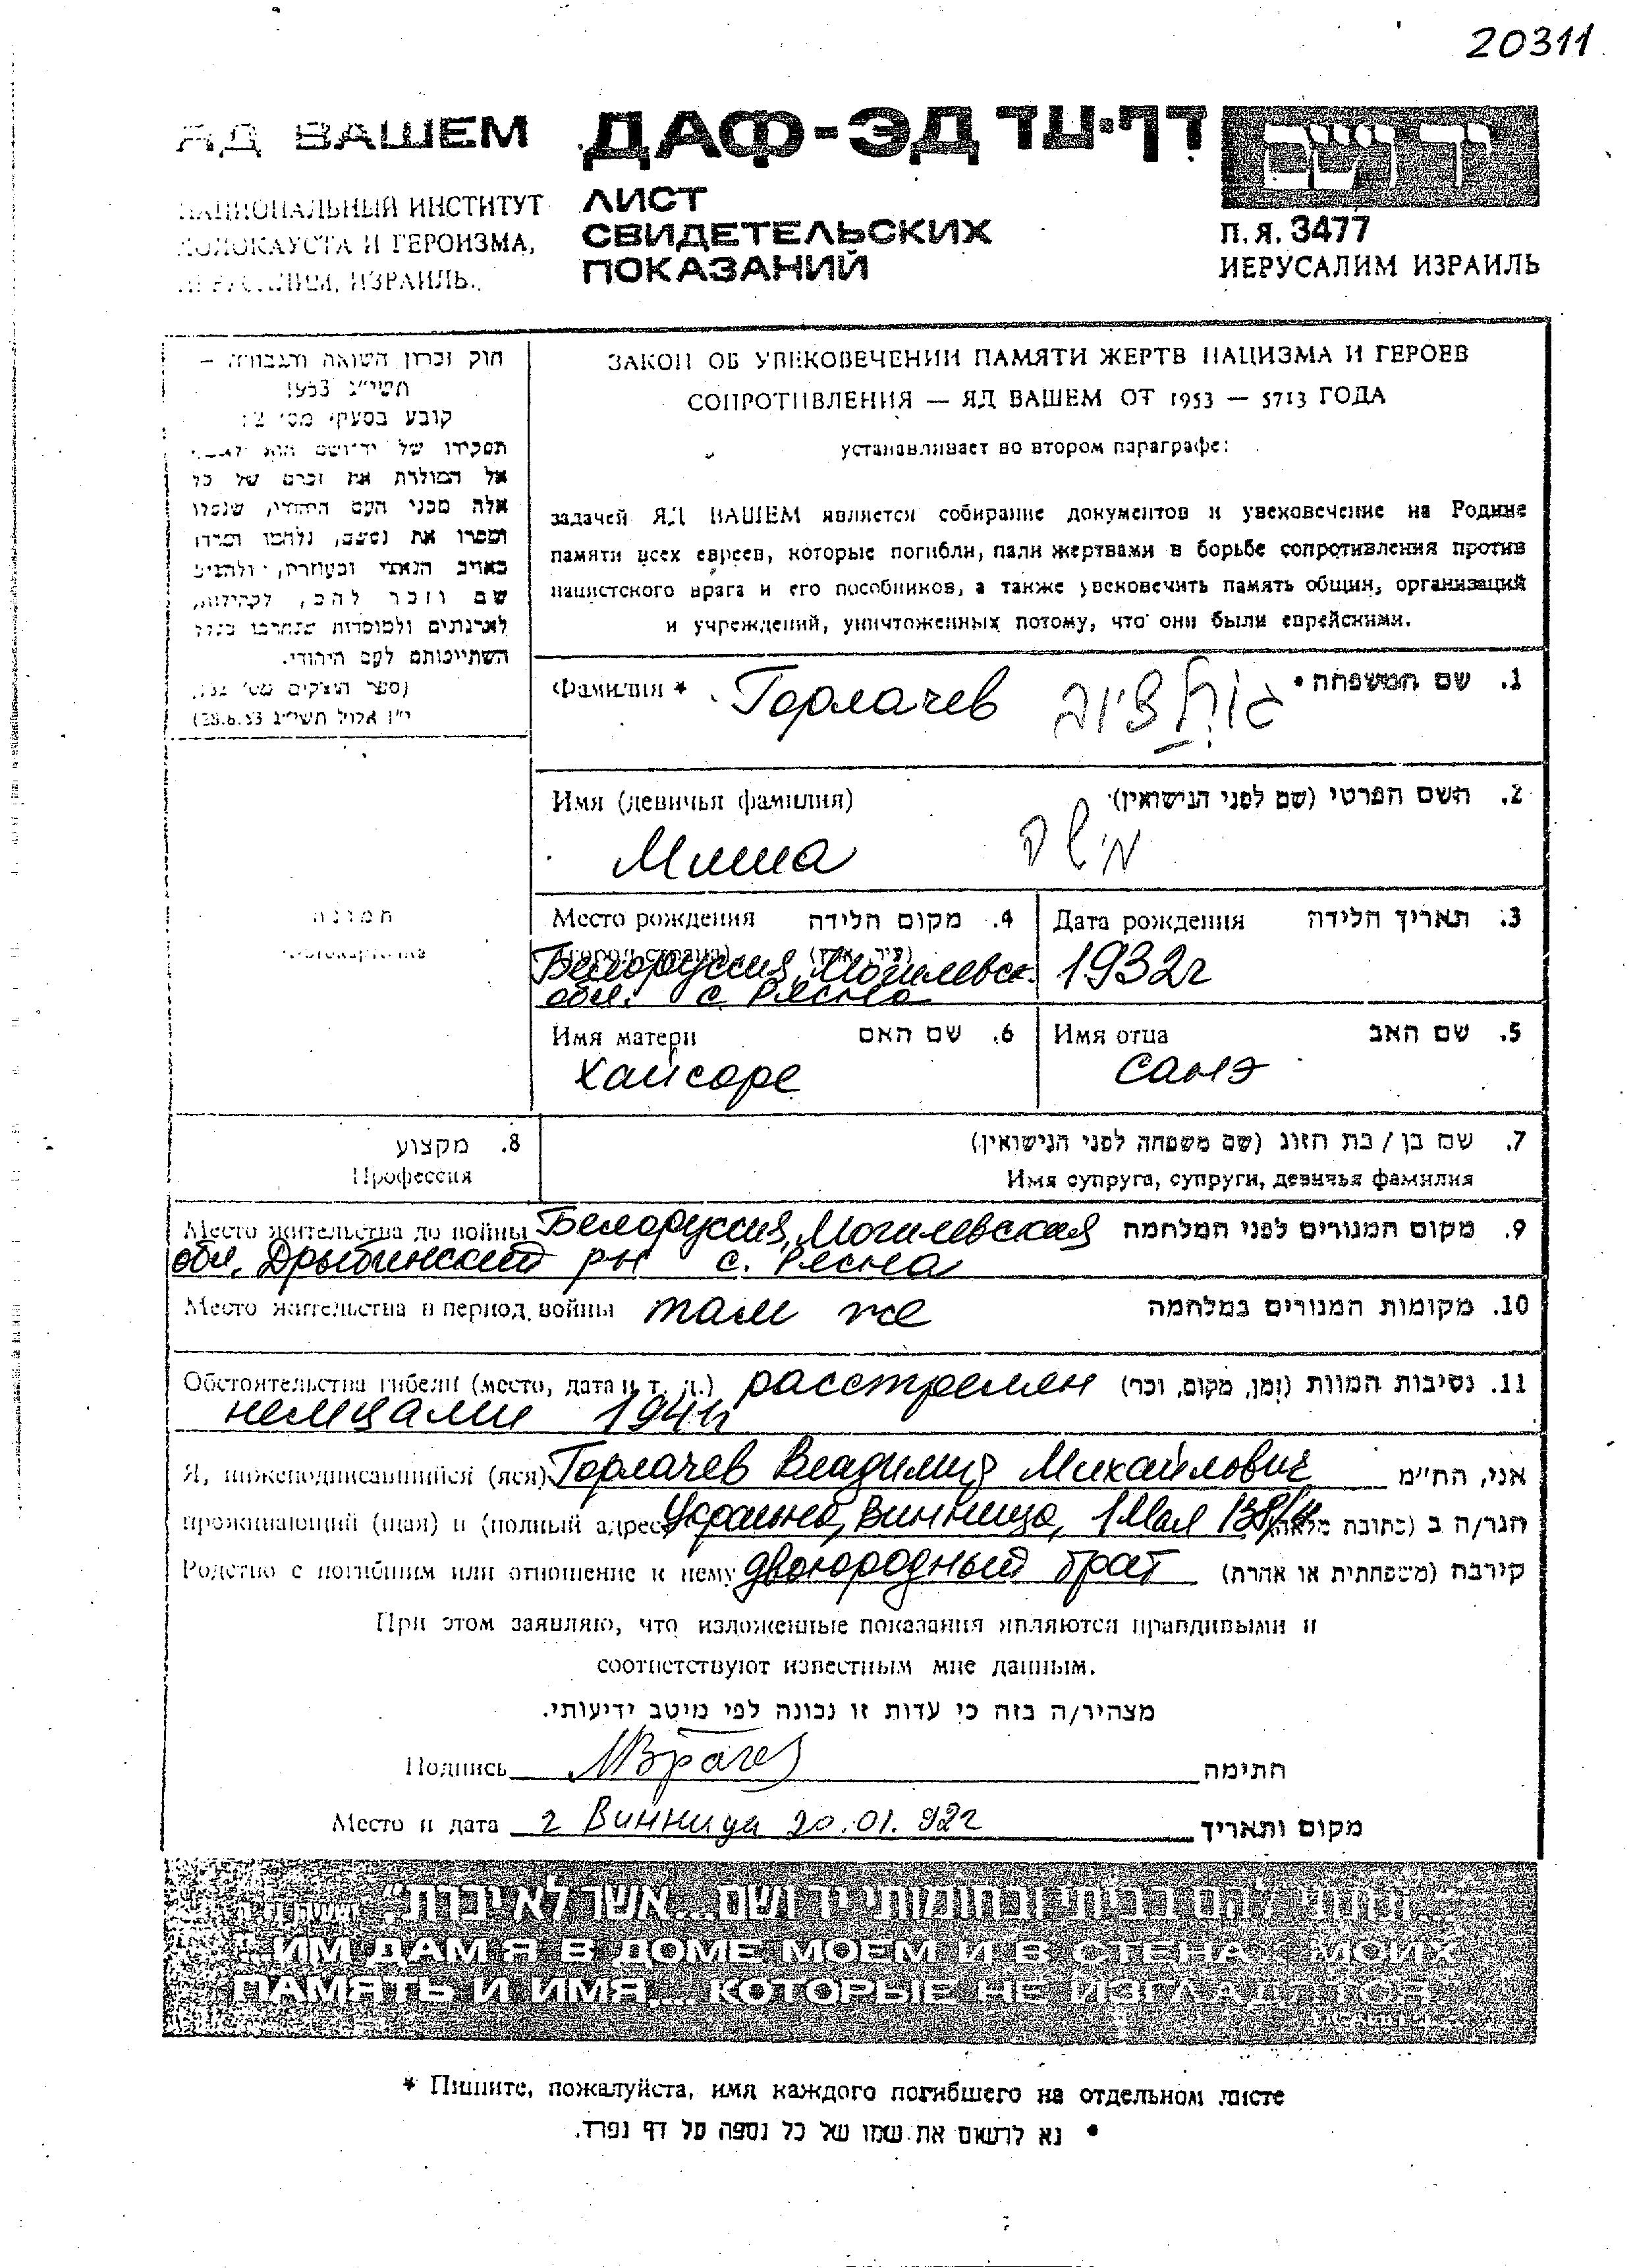 20311
ЯД ВАШЕМ
ДАФ-ЭД דף-עד
יד ושם
НАЦИОНАЛЬНЫЙ ИНСТИТУТ
ХОЛОКАУСТА И ГЕРОИЗМА,
ИЕРУСАЛИМ, ИЗРАИЛЬ.
ЛИСТ
СВИДЕТЕЛЬСКИХ
ПОКАЗАНИЙ
П.Я. 3477
ИЕРУСАЛИМ ИЗРАИЛЬ
חוק זכרון השואה והגבורה –
תשי״ג 1953
קובע בסעיף מס׳ 2:
תפקידו של יד־ושם הוא לאסוף
אל המולדת את זכרם של כל
אלה מבני העם היהודי, שנפלו
ומסרו את נפשם, נלחמו ומרדו
באויב הנאצי ובעוזריו, ולהציב
שם וזכר להם, לקהילות,
לארגונים ולמוסדות שנחרבו בגלל
השתייכותם לעם היהודי.
(ספר החוקים מס׳ 132,
י״ז אלול תשי״ג 28.8.53)
ЗАКОН ОБ УВЕКОВЕЧЕНИИ ПАМЯТИ ЖЕРТВ НАЦИЗМА И ГЕРОЕВ
СОПРОТИВЛЕНИЯ — ЯД ВАШЕМ ОТ 1953 — 5713 ГОДА
устанавливает во втором параграфе:
задачей ЯД ВАШЕМ является собирание документов и увековечение на Родине
памяти всех евреев, которые погибли, пали жертвами в борьбе сопротивления против
нацистского врага и его пособников, а также увековечить память общин, организаций
и учреждений, уничтоженных потому, что они были еврейскими.
Фамилия * Горлачев 1. שם המשפחה•
Имя (девичья фамилия) 2. השם הפרטי (שם לפני הנישואין)
Миша מישה
תמונה
фотокарточка
Место рождения 4. מקום הלידה
(город, страна) (עיר, ארץ)
Белоруссия, Могилевск.
обл. с. Рясна
Дата рождения 3. תאריך הלידה
1932г
Имя матери 6. שם האם
Хайсоре
Имя отца 5. שם האב
Санэ
8. מקצוע
Профессия
7. שם בן / בת הזוג (שם משפחה לפני הנישואין)
Имя супруга, супруги, девичья фамилия
Место жительства до войны Белоруссия, Могилевская 9. מקום המגורים לפני המלחמה
обл, Дрыбинский рн с. Рясна
Место жительства в период войны там же 10. מקומות המגורים במלחמה
Обстоятельства гибели (место, дата и т. д.) расстрелян 11. נסיבות המוות (זמן, מקום, וכו׳)
немцами 1941г
Я, нижеподписавшийся (яся) Горлачев Владимир Михайлович אני, הח״מ
проживающий (щая) в (полный адрес) Украина, Винница, 1 Мая הגר/ה ב (כתובת מלאה)
Родство с погибшим или отношение к нему двоюродный брат קירבה (משפחתית או אחרת)
При этом заявляю, что изложенные показания являются правдивыми и
соответствуют известным мне данным.
מצהיר/ה בזה כי עדות זו נכונה לפי מיטב ידיעותי.
Подпись חתימה
Место и дата г Винница 20.01.92г מקום ותאריך
״...ונתתי להם בביתי ובחומותי יד ושם...אשר לא יכרת״. ישעיהו
...ИМ ДАМ Я В ДОМЕ МОЕМ И В СТЕНАХ МОИХ
ПАМЯТЬ И ИМЯ,... КОТОРЫЕ НЕ ИЗГЛАДЯТСЯ
* Пишите, пожалуйста, имя каждого погибшего на отдельном листе
• נא לרשום את שמו של כל נספה על דף נפרד.